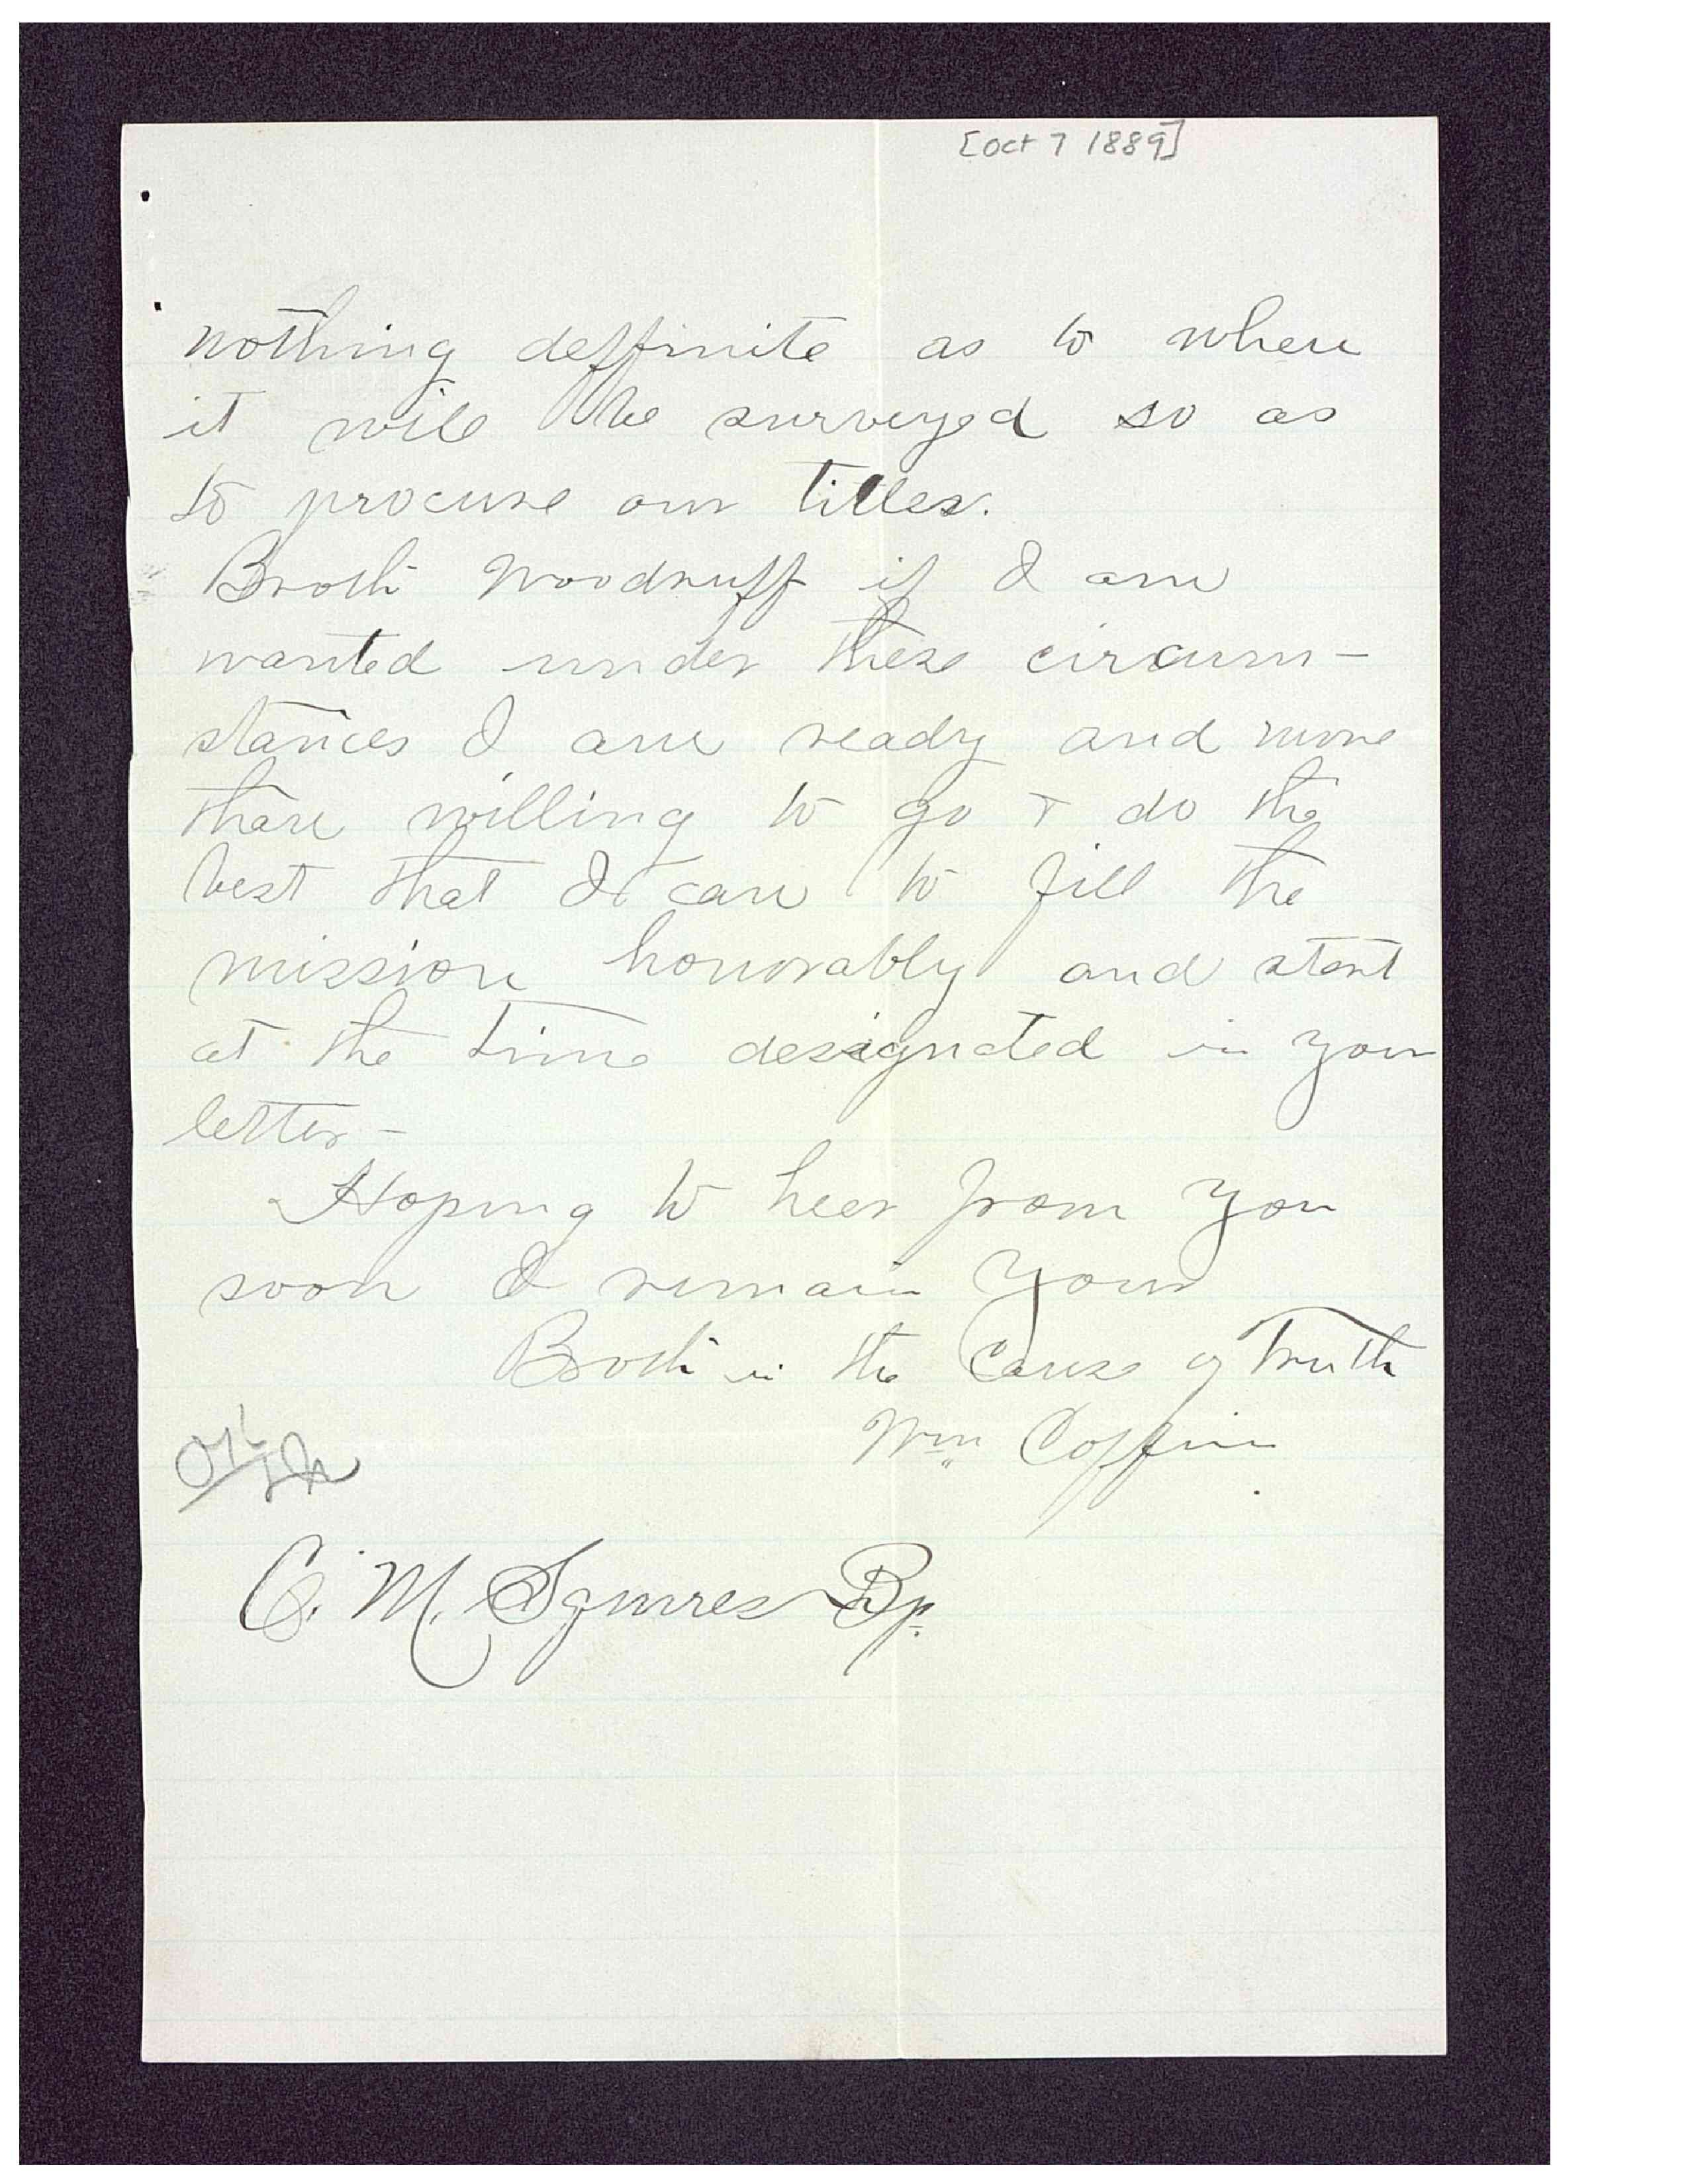 [Oct 7 1889]
nothing deffinite as to when
it will be surveyed so as
to procure our titles.
Broth Woodruff if I am
wanted under these circum-
stances I am ready and more
than willing to go & do the
best that I can to fill the
mission honorably and start
at the time designated in your
letter-
Hoping to heer from you
soon I remain your
Broth in the Cause of Truth
Wm Coffin
C. M. Squires Bp.